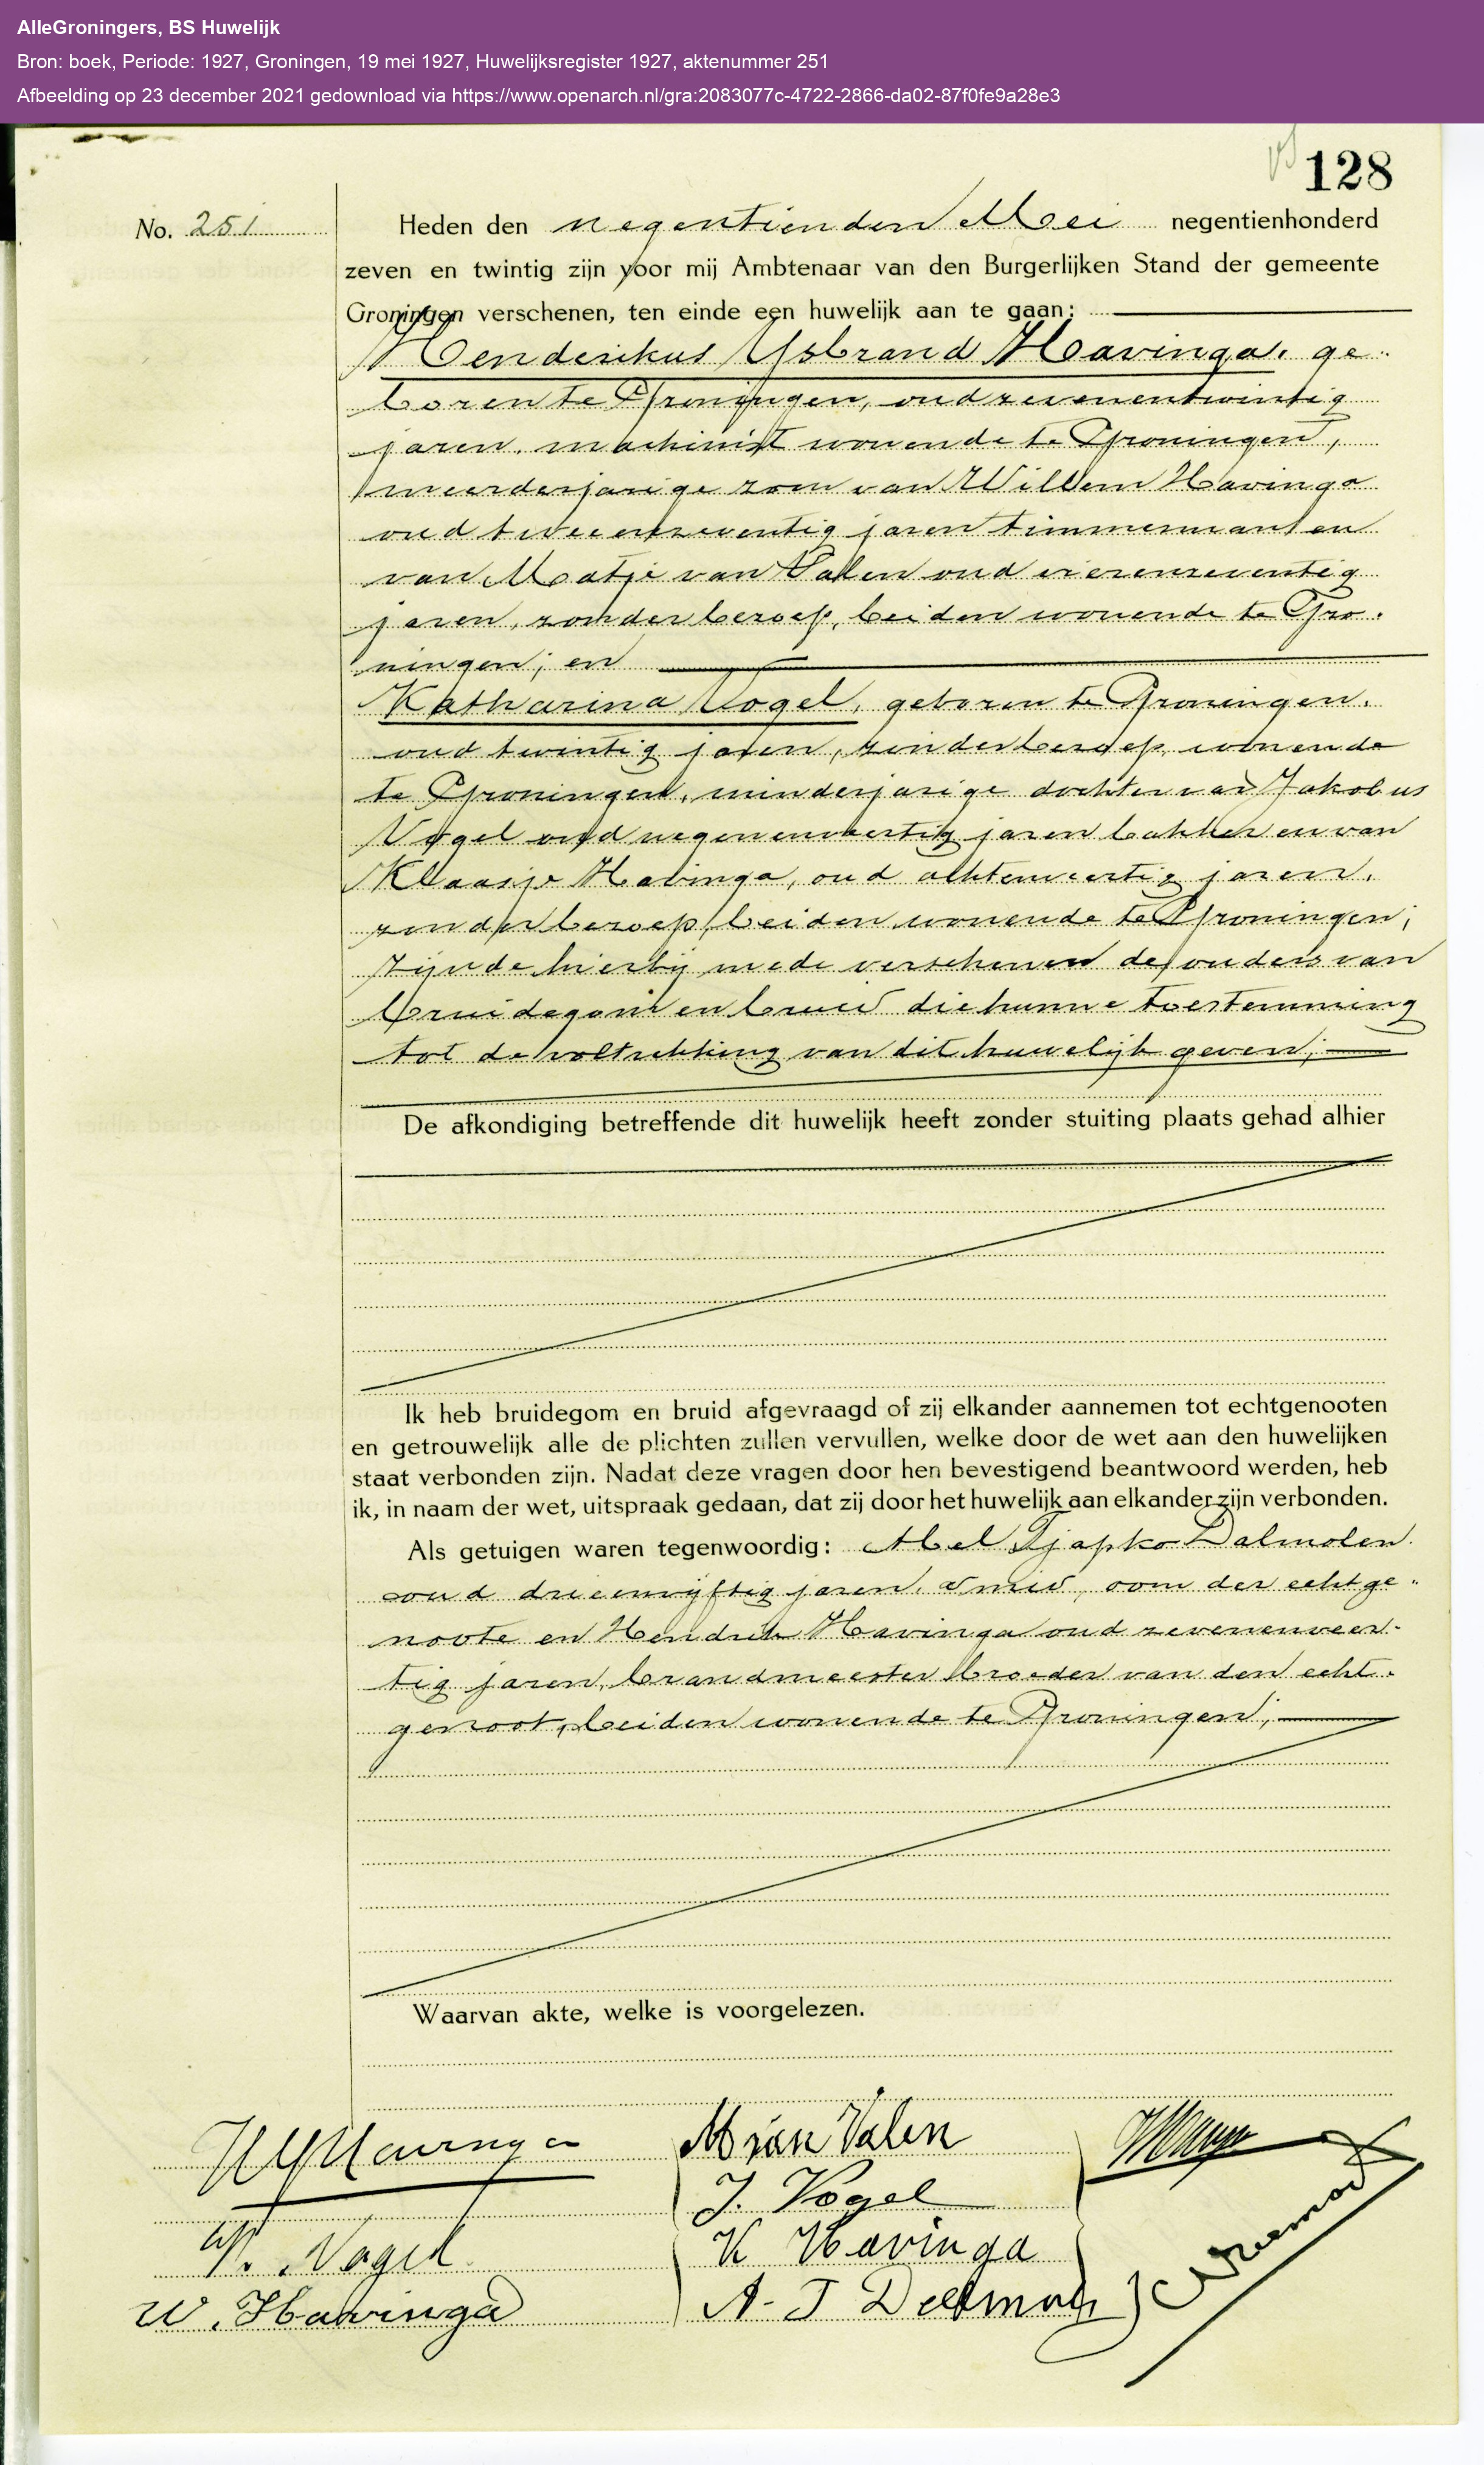 AlleGroningers, BS Huwelijk
Bron: boek, Periode: 1927, Groningen, 19 mei 1927, Huwelijksregister 1927, aktenummer 251
Afbeelding op 23 december 2021 gedownload via https://www.openarch.nl/gra:2083077c-4722-2866-da02-87f0fe9a28e3
128
No. 251
Heden den negentienden Mei negentienhonderd
zeven en twintig zijn voor mij Ambtenaar van den Burgerlijken Stand der gemeente
Groningen verschenen, ten einde een huwelijk aan te gaan:
Henderikus Ysbrand Havinga, ge-
boren te Groningen, oud zevenentwintig
jaren, machinist wonende te Groningen,
meerderjarige zoon van Willem Havinga
oud tweeenzeventig jaren timmerman en
van Matje van Valen oud vierenzeventig
jaren, zonder beroep, beiden wonende te Gro-
ningen; en
Katharina Vogel, geboren te Groningen,
oud twintig jaren, zonder beroep, wonende
te Groningen, minderjarige dochter van Jakobus
Vogel oud negenenveertig jaren bakker en van
Klaasje Havinga, oud achtenveertig jaren,
zonder beroep, beiden wonende te Groningen;
zijnde hierbij mede verschenen de ouders van
bruidegom en bruid die hunne toestemming
tot de voltrekking van dit huwelijk geven;
De afkondiging betreffende dit huwelijk heeft zonder stuiting plaats gehad alhier
Ik heb bruidegom en bruid afgevraagd of zij elkander aannemen tot echtgenooten
en getrouwelijk alle de plichten zullen vervullen, welke door de wet aan den huwelijken
staat verbonden zijn. Nadat deze vragen door hen bevestigend beantwoord werden, heb
ik, in naam der wet, uitspraak gedaan, dat zij door het huwelijk aan elkander zijn verbonden.
Als getuigen waren tegenwoordig: Abel Tjapko Dalmolen
oud drieenvijftig jaren, smid, oom der echtge-
noote en Hendrik Havinga oud zevenenveer-
tig jaren, brandmeester broeder van den echt-
genoot, beiden wonende te Groningen;
Waarvan akte, welke is voorgelezen.
HYHavinga
M van Valen
J. Vogel
K. Vogel
K Havinga
W. Havinga
A. T Dalmolen